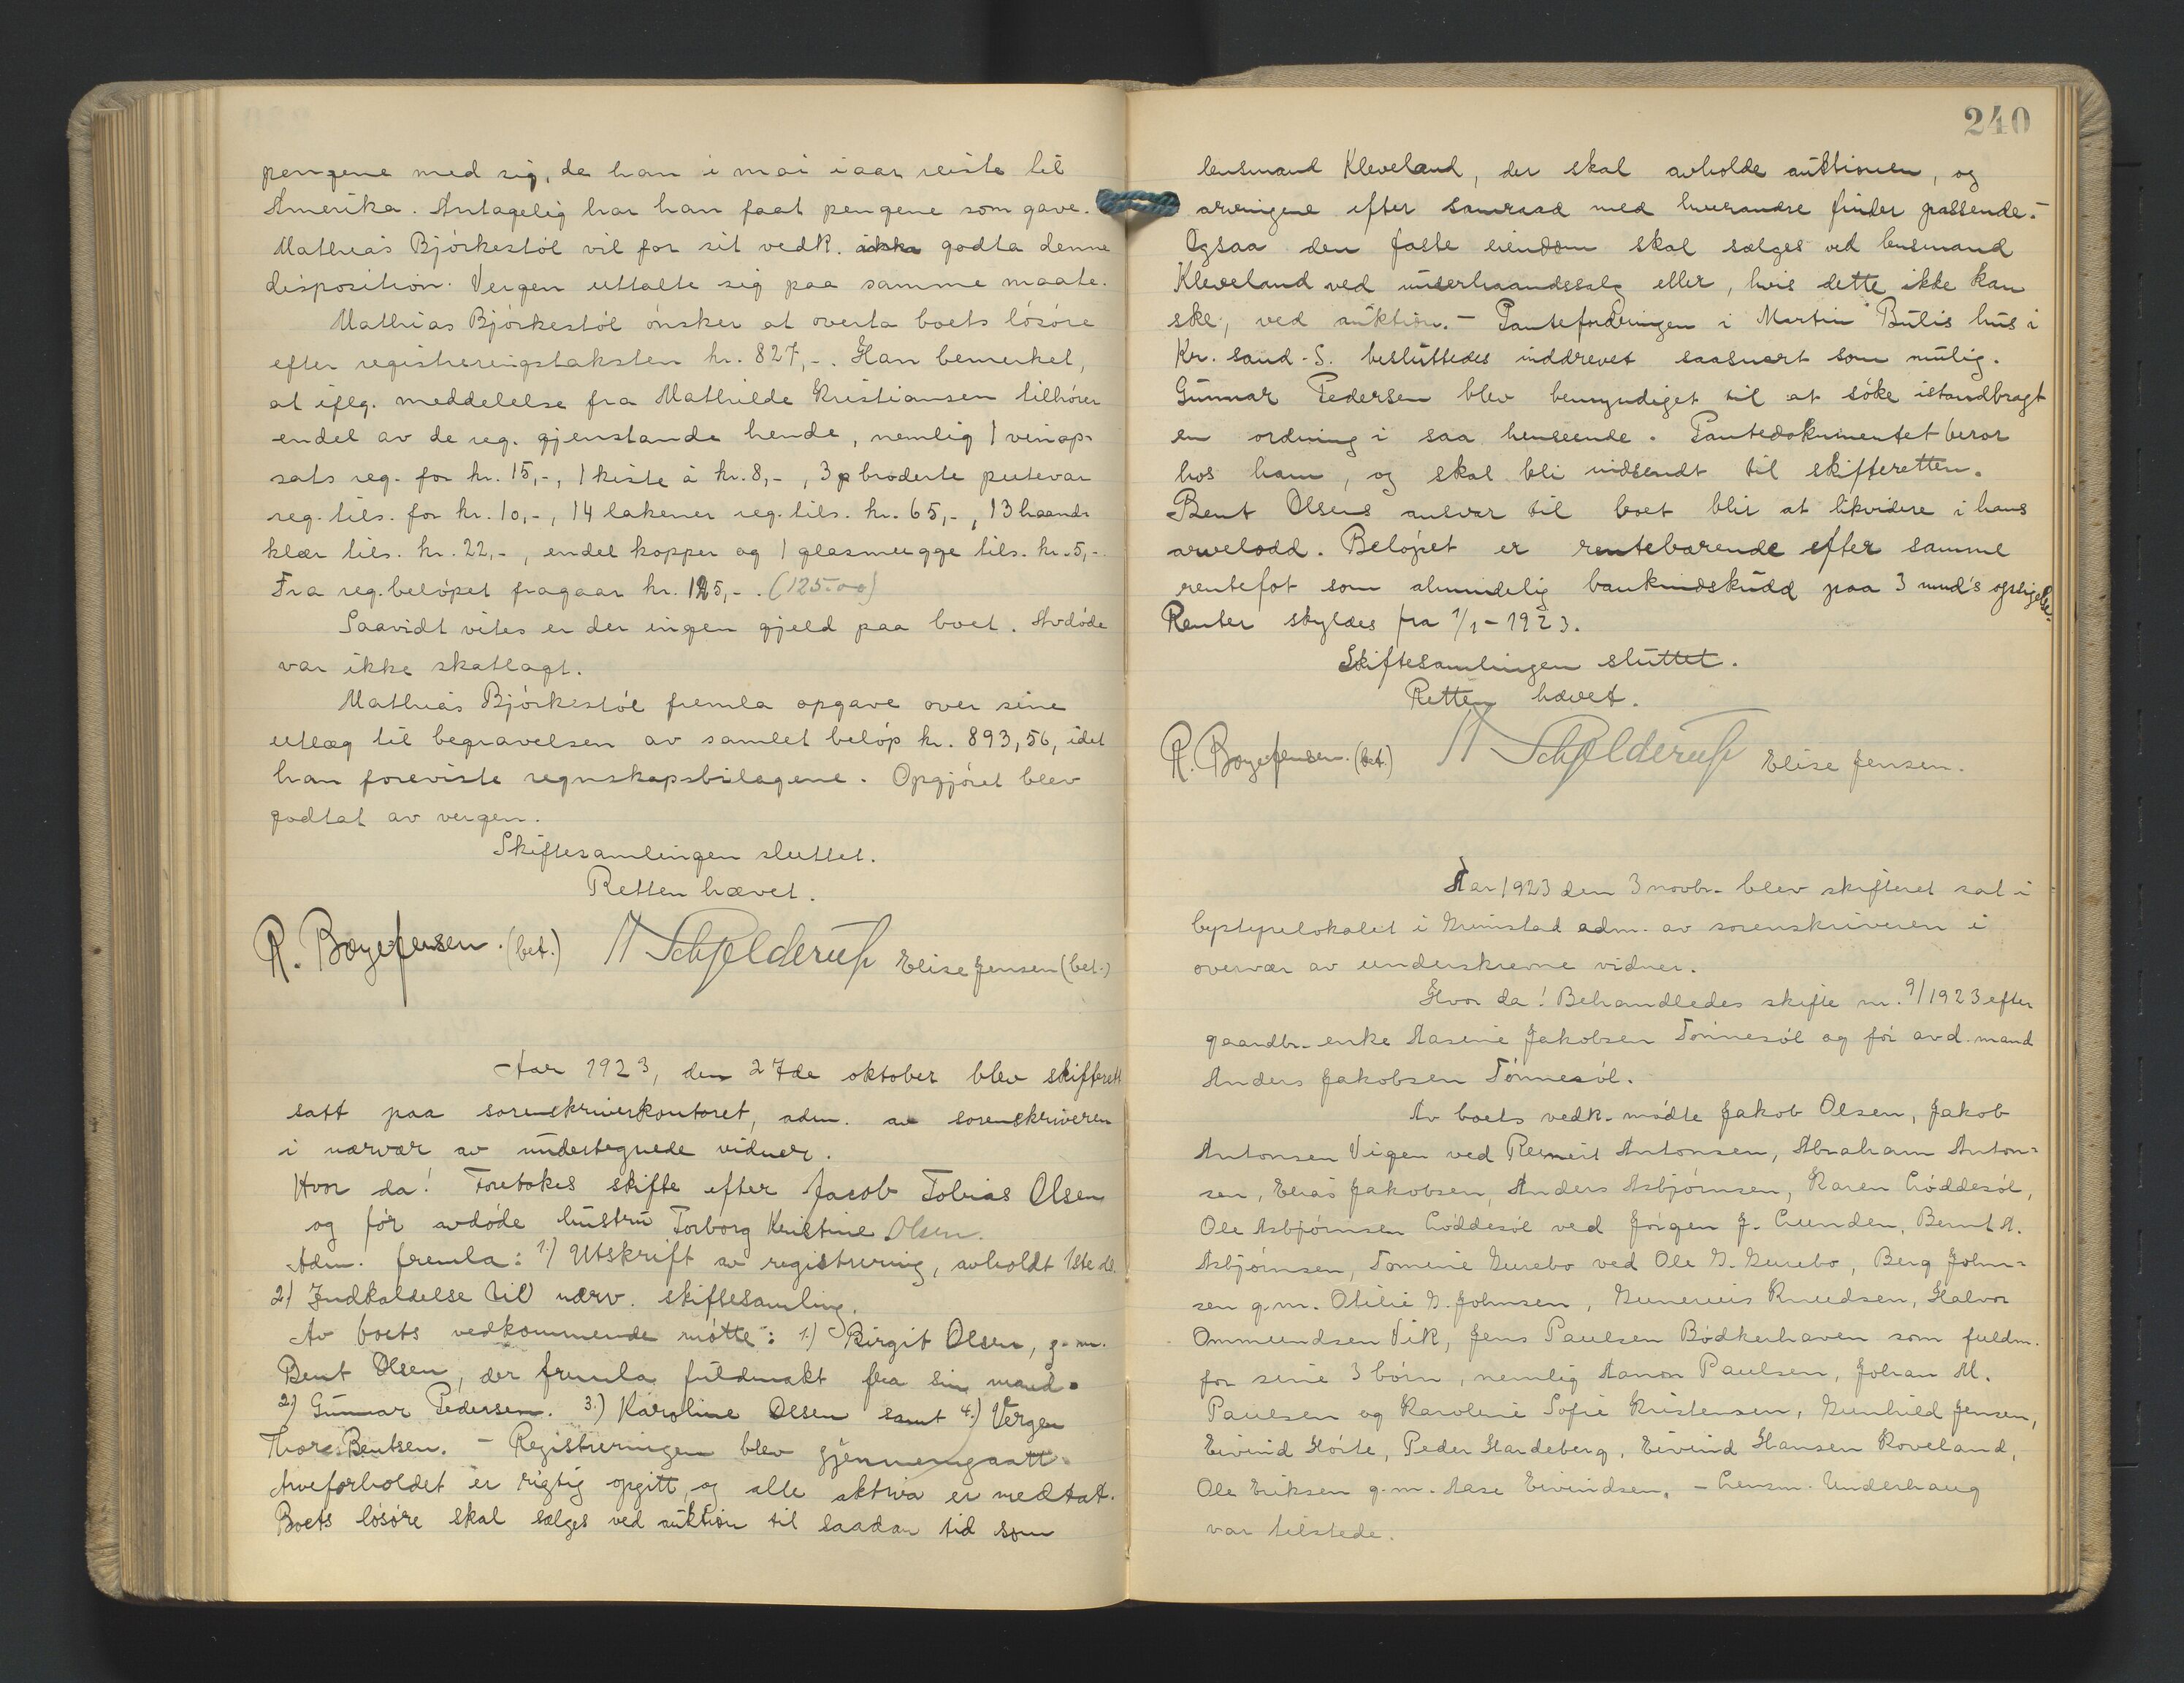 pengene med sig, da han i mai iaar reiste til
Amerika. Antagelig har han faat pengene som gave.
Mathias Bjórkestól vil for sit vedk. ikke godta denne
disposition. Vergen uttalte sig paa samme maate.
Mathias Bjórkestól ónsker at overta boets lósóre
efter registreringstaksten kr. 827,-. Han bemerket,
at iflg. meddelelse fra Mathilde Kristiansen tilhórer
endel av de reg. gjenstande hende, nemlig 1 vinop-
sats reg. for kr. 15,-, 1 kiste á kr. 8,-, 3 broderte putevar
reg. tils. for kr. 10,-, 14 lakener reg. tils. kr. 65,-, 13 haand-
klær tils. kr. 22,-, endel kopper og 1 glasmugge tils. kr. 5,-.
Fra reg. belópet fragaar kr. 125,-. (125.00)
Saavidt vites er der ingen gjeld paa boet. Avdóde
var ikke skatlagt.
Mathias Bjórkestól fremla opgave over sine
utlæg til begravelsen av samlet belóp kr. 893,56, idet
han foreviste regnskapsbilagene. Opgjóret blev
godtat av vergen.
Skiftesamlingen sluttet.
Retten hævet.
R. Boyejensen. (bet.) Schjelderup Elise Jensen (bet.)
Aar 1923, den 27de oktober blev skifterett
satt paa sorenskriverkontoret, adm. av sorenskriveren
i nærvær av undertegnede vidner.
Hvor da! Foretokes skifte efter Jacob Tobias Olsen
og fór avdóde hustru Torborg Kristine Olsen.
Adm. fremla: 1.) Utskrift av registrering, avholdt 1ste ds.
2) Indkaldelse til nærv. skiftesamling.
Av boets vedkommende mótte: 1.) Birgit Olsen, g. m.
Bent Olsen, der fremla fuldmakt fra sin mand.
2) Gunnar Pedersen. 3.) Karoline Olsen samt 4.) Vergen
Thore Bentsen. - Registreringen blev gjennemgaatt.
Arveforholdet er rigtig opgitt og alle aktiva er medtat.
Boets lósóre skal sælges ved auktion til saadan tid som
240
lensmand Kleveland, der skal avholde auktionen, og
arvingene efter samraad med hverandre finder passende.-
Ogsaa den faste eiendom skal sælges ved lensmand
Kleveland ved underhaandssalg eller, hvis dette ikke kan
ske, ved auktion. - Pantefordringen i Martin Bulis hus i
Kr. sand. S. besluttedes inddrevet saasnart som mulig.
Gunnar Pedersen blev bemyndiget til at sóke istandbragt
en ordning i saa henseende. Pantedokumentet beror
hos ham, og skal bli indsendt til skifteretten.
Bent Olsens ansvar til boet blir at likvidere i hans
arvelodd. Belópet er rentebærende efter samme
rentefot som almindelig bankindskudd paa 3 mnd's opsigelse.
Renter skyldes fra 1/1 - 1923.
Skiftesamlingen sluttet.
Retten hævet.
R. Boyejensen. (bet.) Schjelderup Elise Jensen.
Aar 1923 den 3 novbr. blev skifteret sat i
bystyrelokalet i Grimstad adm. av sorenskriveren i
overvær av underskrevne vidner.
Hvor da! Behandledes skifte nr. 9/1923 efter
gaardbr. enke Aasine Jakobsen Tónnesól og fór avd. mand
Anders Jakobsen Tónnesól.
Av boets vedk. módte Jakob Olsen, Jakob
Antonsen Vigen ved Reinert Antonsen, Abraham Anton-
sen, Elias Jakobsen, Anders Asbjórnsen, Karen Lóddesól,
Ole Asbjórnsen Lóddesól ved Jórgen J. Lunden, Bernt A.
Asbjórnsen, Tomine Gurebo ved Ole G. Gurebo, Berg John-
sen g.m. Otilie G. Johnsen, Gunerius Knudsen, Halvor
Ommundsen Vik, Jens Paulsen Bódkerhaven som fuldm.
for sine 3 bórn, nemlig Aanon Paulsen, Johan M.
Paulsen og Karoline Sofie Kristensen, Gunhild Jensen,
Eivind Hórte, Peder Hardeberg, Eivind Hansen Roveland,
Ole Eriksen g.m. Aase Eivindsen. - Lensm. Underhaug
var tilstede.